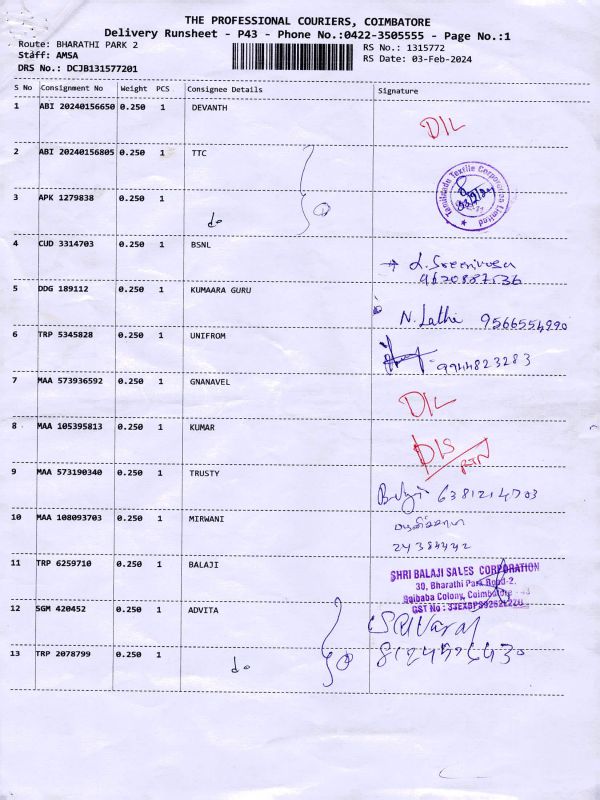 THE PROFESSIONAL COURIERS, COIMBATORE
Delivery Runsheet - P43 - Phone No.:0422-3505555 - Page No.:1
Route: BHARATHI PARK 2 RS No.: 1315772
Staff: AMSA RS Date: 03-Feb-2024
DRS No.: DCJB131577201
S No Consignment No Weight PCS Consignee Details Signature
1 ABI 20240156650 0.250 1 DEVANTH D/L
2 ABI 20240156805 0.250 1 TTC
Tamilnadu Textile Corporation Limited
3 APK 1279838 0.250 1 do 2
4 CUD 3314703 0.250 1 BSNL
5 DDG 189112 0.250 1 KUMAARA GURU N. Lathi 9566554990
6 TRP 5345828 0.250 1 UNIFROM 9944823283
7 MAA 573936592 0.250 1 GNANAVEL D/L
8 MAA 105395813 0.250 1 KUMAR D/S RTN
9 MAA 573190340 0.250 1 TRUSTY Balaji
10 MAA 108093703 0.250 1 MIRWANI
11 TRP 6259710 0.250 1 BALAJI
SHRI BALAJI SALES CORPORATION
30, Bharathi Park Road-2,
Saibaba Colony, Coimbatore - 43
12 SGM 420452 0.250 1 ADVITA
13 TRP 2078799 0.250 1 do 2